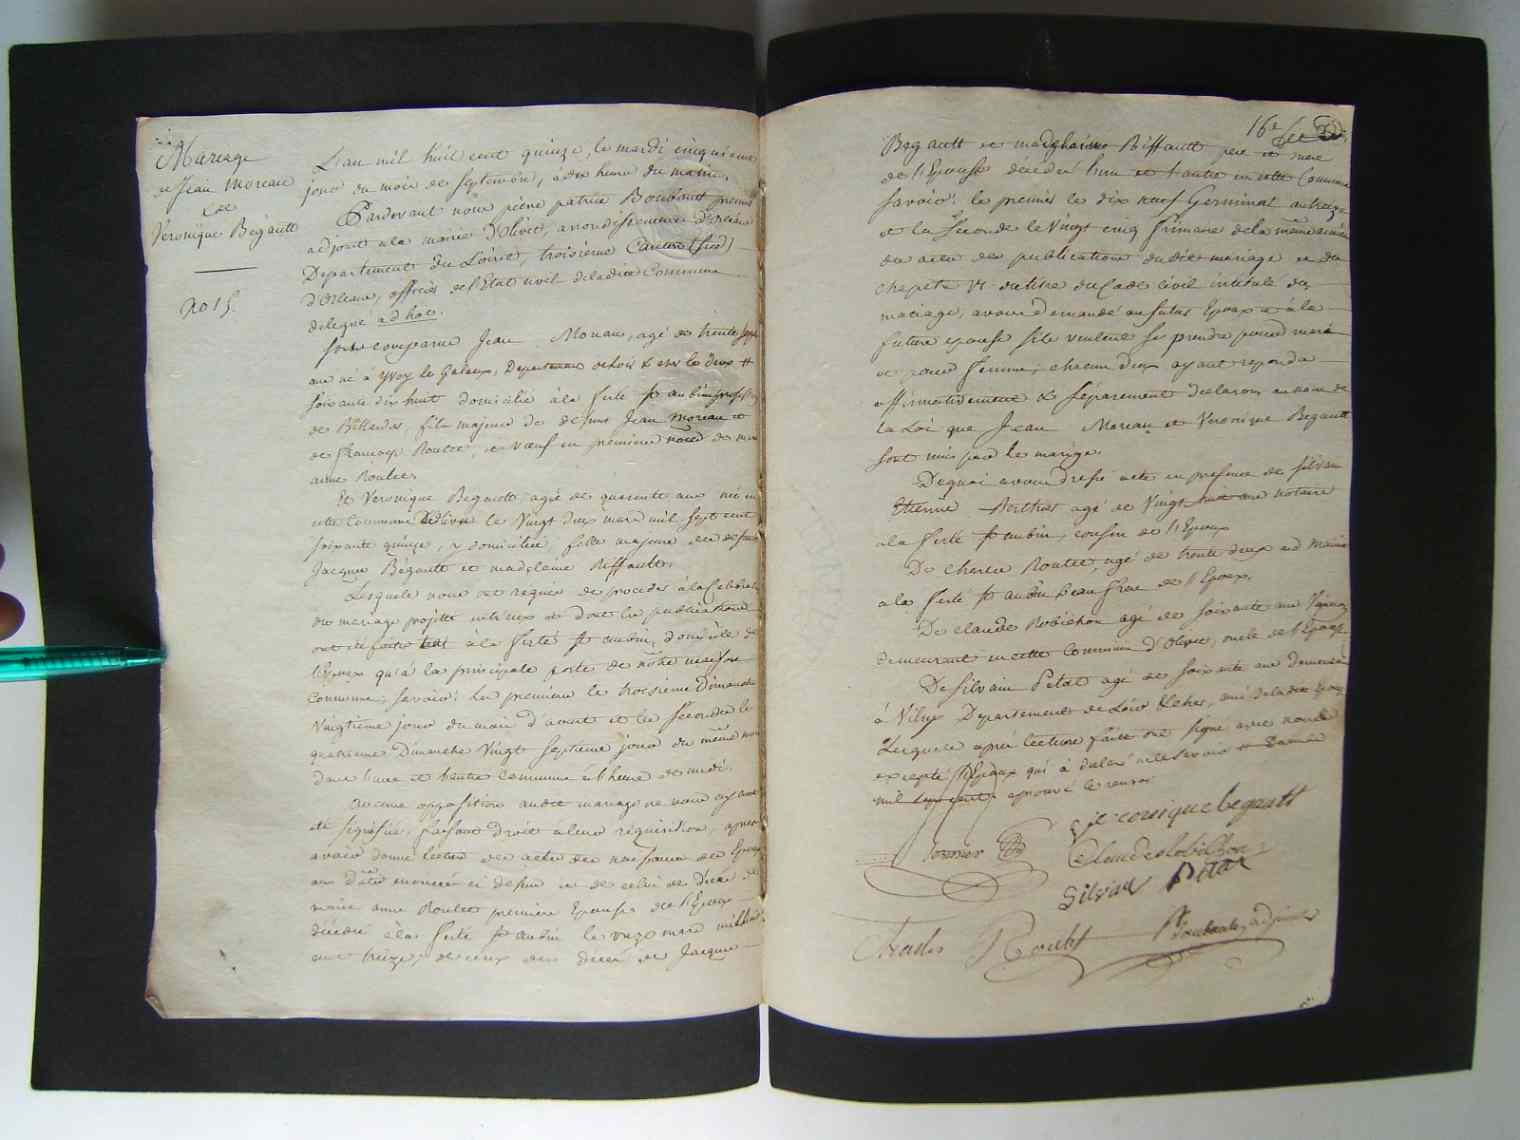 Mariage
de Jean Moreau
et de
Veronique Bégault
No 15
L'an mil huit cent quinze, le mardi cinquième
jour du mois de septembre, à dix heure du matin,
Pardevant nous pierre patrice Boubault premier
adjoint à la mairie d'Olivet, arrondissement d'Orléans
Departement du Loiret, troisième Canton (sud)
d'Orléans, officier de l'Etat civil de ladite Commune
délégué ad hoc.
Sont comparus Jean Moreau, agé de trente sept
ans né à Yvoy le Galeux, Departement de Loir & cher le deux #
soixante dix huit domicilié à la ferté St aubin profession
de Billardor, fils majeur de defunt Jean Moreau et
de françoise Roulet, et veuf en première noces de marie
anne Roulet.
Et Veronique Begault agée de quarante ans née en
cette Commune d'Olivet le Vingt deux mars mil sept cent
soixante quinze, y domiciliée, fille majeure de defunt
Jacques Bégault et madeleine Riffault.
Lesquels nous ont requis de procéder à la Célébration
du mariage projetté entr'eux et dont les publications
ont été faites tant à la ferté St aubin, domicile de
l'Epoux qu'à la principale porte de notre maison
commune, savoir: la première le troisième Dimanche
Vingtième jour du mois d'aout et la seconde le
quatrième Dimanche Vingt Septième jour du même mois
dans l'une et l'autre commune à l'heure de midi.
Aucune opposition audit mariage ne nous ayant
été signifiée, faisant droit à leur réquisition, après
avoir donné lecture des actes de naissance des Epoux
aux dates énoncées ci dessus et de celui de décès de
marie anne Roulet première Epouse de l'Epoux
décédée à la ferté St aubin le onze mars mil huit
cent treize, de ceux des décès de Jacques
16e
Bégault et madeleine Riffault père et mère
de l'Epouse décédés l'un et l'autre en cette Commune
savoir: le premier le dix neuf Germinal an treize
et la Seconde le Vingt cinq frimaire de la même année
des actes des publications dudit mariage et du
chapitre VI du titre du Code civil intitulé du
mariage, avons demandé au futur Epoux et à la
future epouse s'ils veulent se prendre pour mari
et pour femme; chacun d'eux ayant répondu
affirmativement & séparement declarons au nom de
la Loi que Jean Moreau et Veronique Begault
sont unis par le mariage.
De quoi avons dressé acte en présence de silvain
Etienne Berthet agé de Vingt huit ans notaire
à la ferté St aubin, cousin de l'Epoux
De Charles Roulet, agé de trente deux ans
à la ferté St aubin beau frere de l'Epoux,
De Claude Robichon agé de soixante ans Vigneron
demeurant en cette Commune d'Olivet, oncle de l'Epouse
De Silvain Petat agé de soixante ans demeurant
à Departement de Loir & cher, ami de la dite Epouse
Lesquels après lecture faite ont signé avec nous
excepté l'Epoux qui à déclaré ne le savoir # L'année
mil sept cent, approuvé le renvoi
veronique begault
Claude Robichon
Silvain Petat
Charles Roulet
Boubault, adjoint